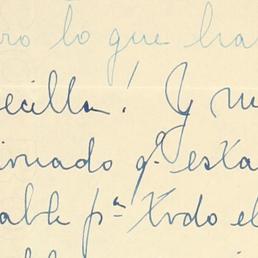 ro lo que ha
ecilla! Y m
ionado qº esta
able pª Xvdo el